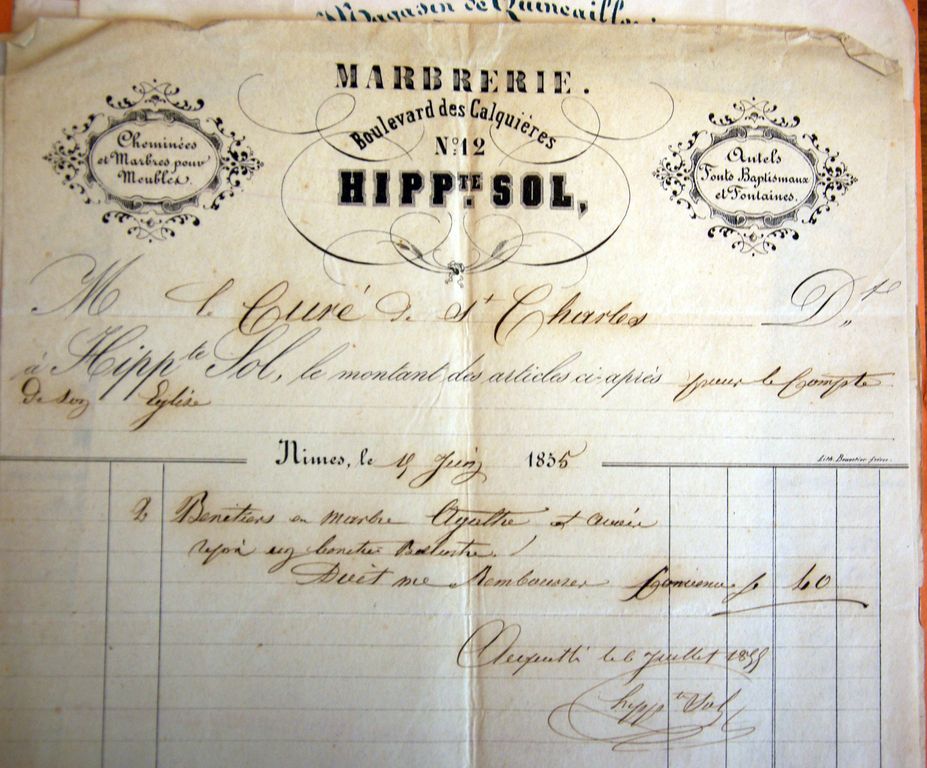 Magasin de Quincaillerie
MARBRERIE.
Boulevard des Calquières
No. 12
HIPPTE. SOL,
Cheminées
et Marbres pour
Meubles.
Autels
Fonts Baptismaux
et Fontaines.
M le Curé de St Charles Dt
à Hippte Sol, le montant des articles ci-après pour le Compte
de son Eglise
Nimes, le 15 Juin 1855
2 Benitiers en marbre Agathe et avoir
un
Doit me Rembourser Convenu f 40
Acquitté le 6 Juillet 1855
hippte Sol